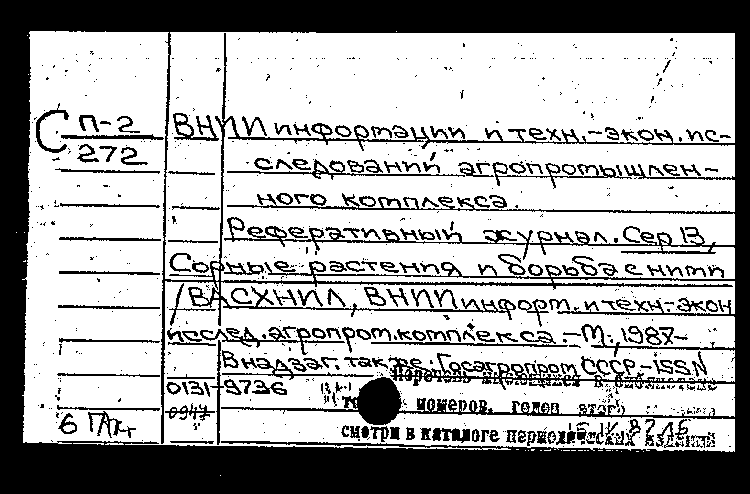 С П-2
272
ВНИИ информации и техн.-экон. ис-
следований агропромышлен-
ного комплекса.
Реферативный журнал. Сер 13,
Сорные растения и борьба с ними
/ВАСХНИЛ, ВНИИ информ. и техн.-экон
исслед. агропром. комплекса.-М., 1987-
В надзаг. также: Госагропром СССР.-ISSN
0131-9736
0947
Перечень имеющихся в библиотеке
номеров, годов этого
смотри в каталоге периодических изданий
6